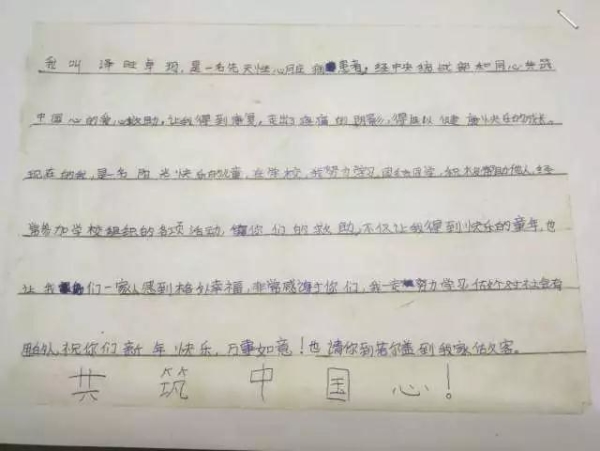 我叫泽旺卓玛,是一名先天性心脏病患者,经中央统战部和同心共筑
中国心的爱心救助,让我得到康复,走出了疼痛的阴影,得以以健康快乐的成长。
现在的我,是一名阳光快乐的儿童,在学校,我努力学习,团结同学,积极帮助他人,经
常参加学校组织的各项活动,你们的救助,不仅让我得到快乐的童年,也
让我们一家人感到格外幸福,非常感谢你们,我一定努力学习,做个对社会有
用的人,祝你们新年快乐,万事如意!也请你到若尔盖到我家做客。
共筑中国心!